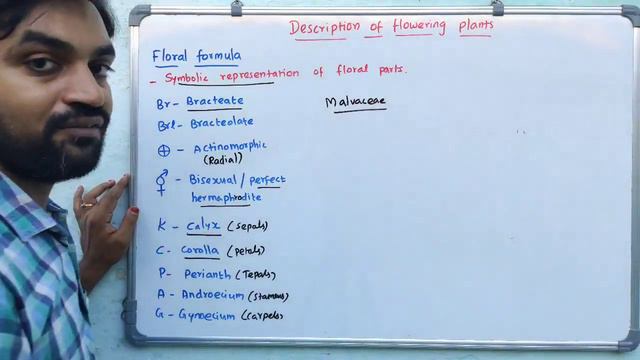 Description of flowering plants
Floral formula
- Symbolic representation of floral parts.
Br - Bracteate
Malvaceae
Brl - Bracteolate
⊕ - Actinomorphic
(Radial)
⚥ - Bisexual / perfect
hermaphrodite
K - Calyx (sepals)
C - Corolla (petals)
P - Perianth (Tepals)
A - Androecium (stamens)
G - Gynoecium (carpels)